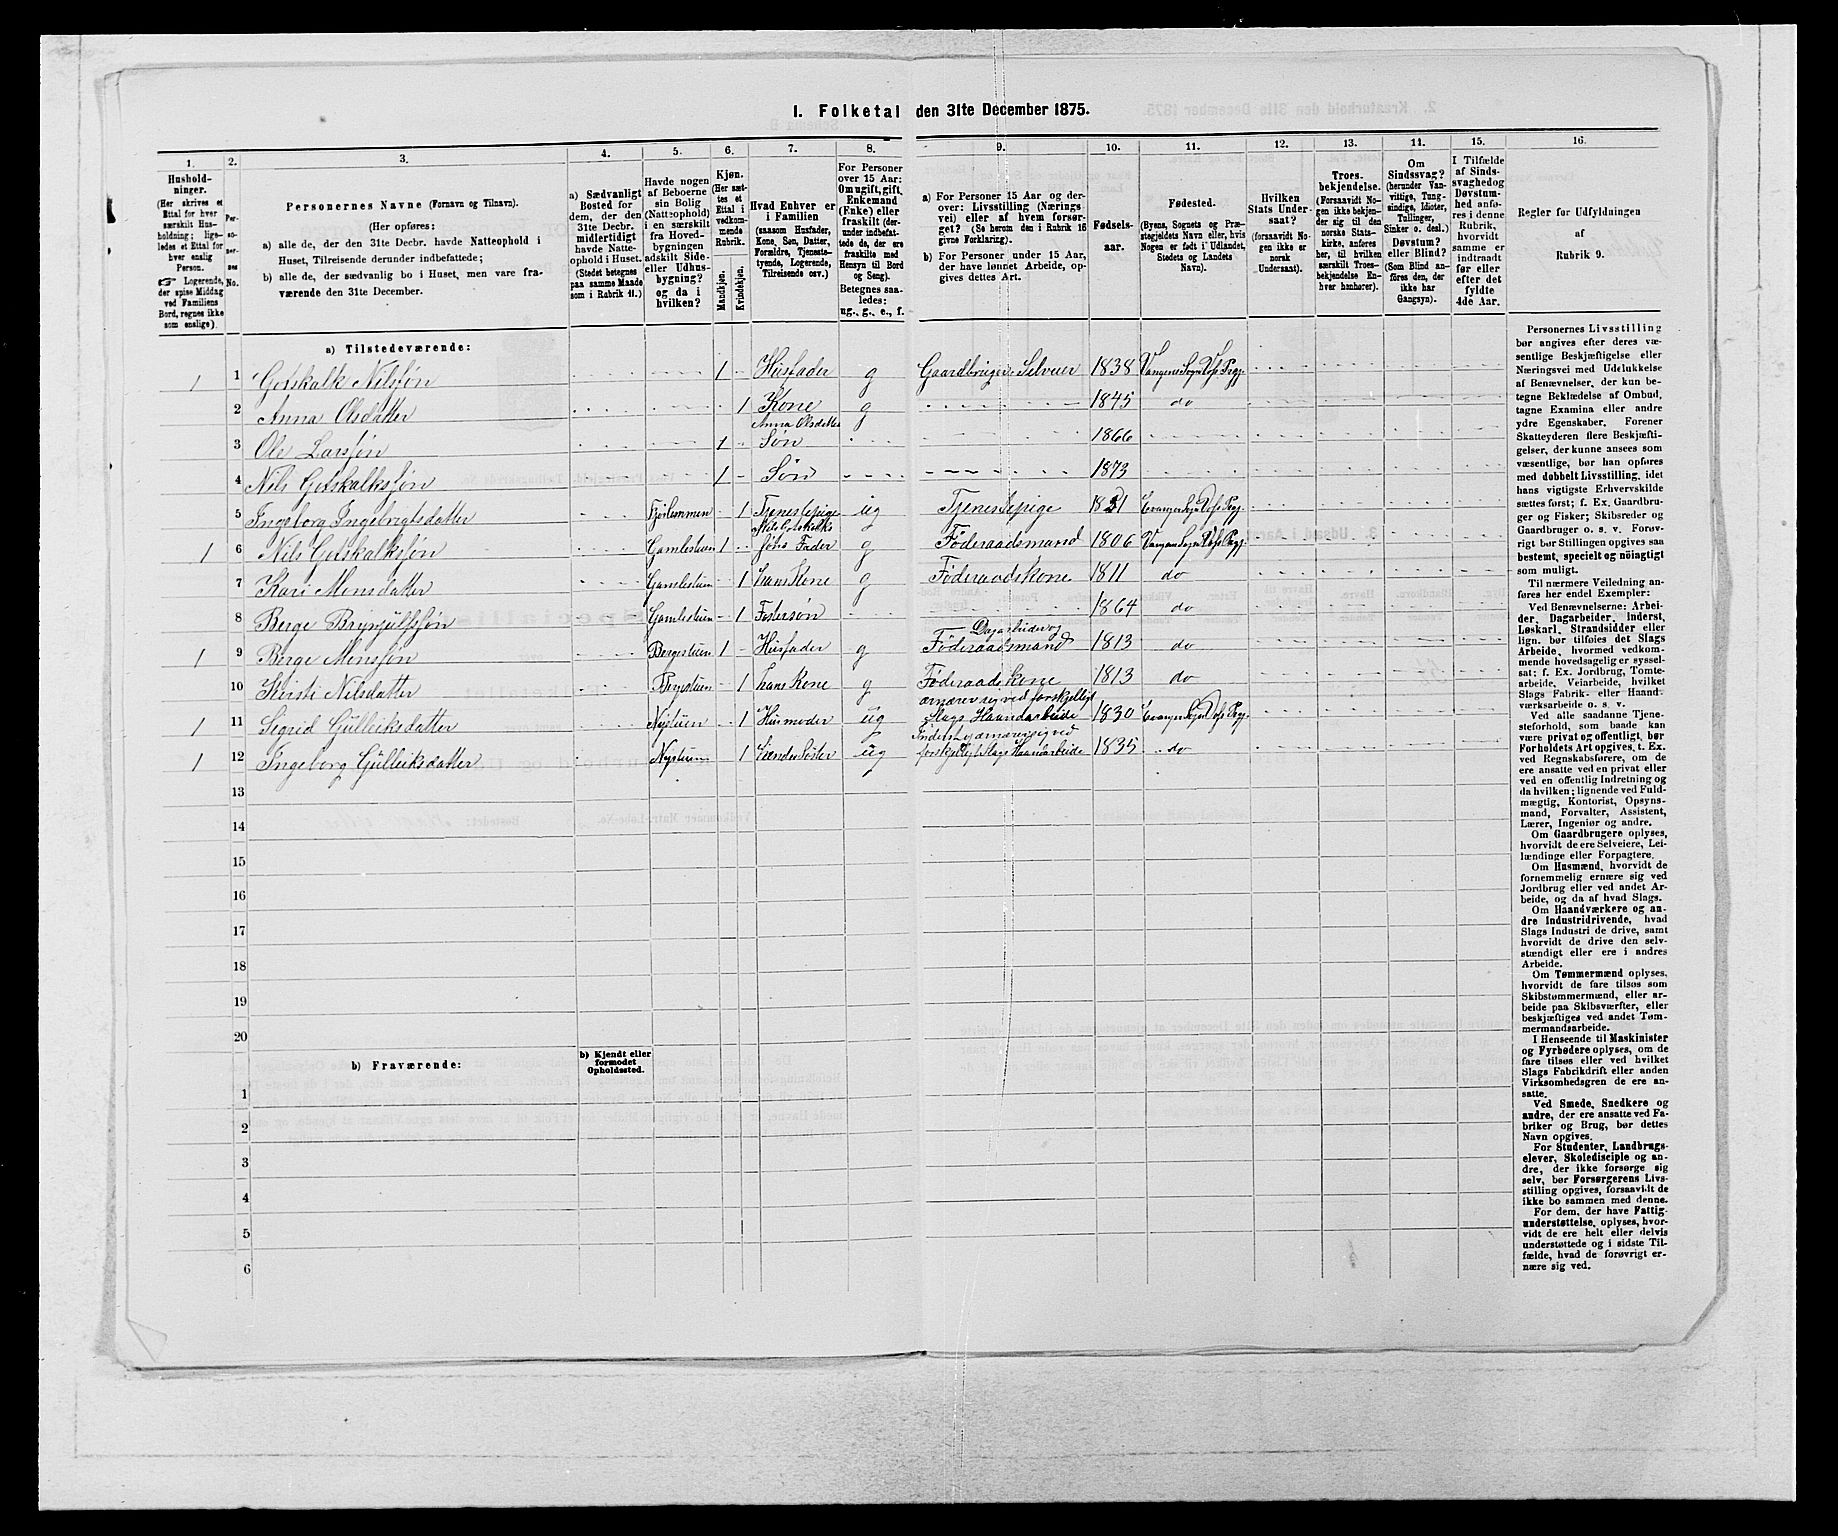 I. Folketal den 31te December 1875.
1. 2. 3. 4. 5. 6. 7. 8. 9. 10. 11. 12. 13. 11. 15. 16.
Hushold-
ninger.
(Her skrives et
Ettal for hver
særskilt Hus-
holdning; lige-
ledes et Ettal for
hver enslig
Person.
☞ Logerende,
der spise Middag
ved Familiens
Bord, regnes ikke
som enslige).
Per-
so-
ner-
nes
No.
Personernes Navne (Fornavn og Tilnavn).
(Her opføres:
a) alle de, der den 31te Decbr. havde Natteophold i
Huset, Tilreisende derunder indbefattede;
b) alle de, der sædvanlig bo i Huset, men vare fra-
værende den 31te December.
a) Sædvanligt
Bosted for
dem, der den
31te Decbr.
midlertidigt
havde Natte-
ophold i Huset.
(Stedet betegnes
paa samme Maade
som i Rubrik 11.)
Havde nogen
af Beboerne
sin Bolig
(Natteophold)
i en særskilt
fra Hoved-
bygningen
adskilt Side-
eller Udhus-
bygning?
og da i
hvilken?
Kjøn.
(Her sæt-
tes et
Ettal i
vedkom-
mende
Rubrik.
Mandkjøn.
Kvindekjøn.
Hvad Enhver er
i Familien
(saasom Husfader,
Kone, Søn, Datter,
Forældre, Tjeneste-
tyende, Logerende,
Tilreisende osv.)
For Personer
over 15 Aar:
Om ugift, gift,
Enkemand
(Enke) eller
fraskilt (der-
under indbefat-
tede de, der ere
fraskilte med
Hensyn til Bord
og Seng).
Betegnes saa-
ledes:
ug., g., e., f.
a) For Personer 15 Aar og der-
over: Livsstilling (Nærings-
vei) eller af hvem forsør-
get? (Se herom den i Rubrik 16
givne Forklaring).
b) For Personer under 15 Aar,
der have lønnet Arbeide, op-
gives dettes Art.
Fødsels-
aar.
Fødested.
(Byens, Sognets og Præ-
stegjeldets Navn eller, hvis
Nogen er født i Udlandet,
Stedets og Landets
Navn).
Hvilken
Stats Under-
saat?
(forsaavidt No-
gen ikke er
norsk
Undersaat).
Troes-
bekjendelse.
(Forsaavidt No-
gen ikke bekjen-
der sig til den
norske Stats-
kirke, anføres
her, til hvilken
særskilt Troes-
bekjendelse En-
hver henhører).
Om
Sindssvag?
(herunder Van-
vittige, Tung-
sindige, Idioter,
Tullinger,
Sinker o. desl.)
Døvstum?
eller Blind?
(Som Blind an-
føres den, der
ikke har
Gangsyn).
I Tilfælde
af Sinds-
svaghed og
Døvstum-
hed anfø-
res i denne
Rubrik,
hvorvidt
samme er
indtraadt
før eller
efter det
fyldte
4de Aar.
Regler for Udfyldningen
af
Rubrik 9.
a) Tilstedeværende:
1 1 Gotskalk Nilssøn 1 Husfader g Gaardbruger Selveier 1838 Vangens Sogn Vos Prgj
2 Anna Olsdatter 1 Kone g 1845 do
3 Ole Larssøn 1 Anna Olsdatter Søn 1866
4 Nils Gotskalkssøn 1 Søn 1873
5 Ingeborg Ingebrigtsdatter 1 Tjenestepige ug Tjenestepige Evanger Sogn Vos Prgj
1 6 Nils Gotskalkssøn Gamlestuen 1 Nils Gotskalks søns Fader g Föderaadsmand 1806 Vangens Sogn Vos Prgj
7 Kari Monsdatter Gamlestuen 1 hans Kone g Föderaadskone 1811 do
8 Berge Brynjulfssøn Gamlestuen 1 Fostersøn 1864 do
1 9 Berge Monssøn Bergestuen 1 Husfader g Dagarbeider og Föderaadsmand 1813 do
10 Kirsti Nilsdatter Bergestuen 1 hans Kone g Föderaadskone 1813 do
1 11 Segrid Gulleiksdatter Nystuen 1 Husmoder ug ernærer sig ved forskjelligt Slags Haandarbeide 1830 Evanger Sogn Vos Prgj
1 12 Ingeborg Gulleiksdatter Nystuen 1 Søster ug forskjelligt Slags Haandarbeide 1835 do
13
14
15
16
17
18
19
20
b) Fraværende:
b) Kjendt eller
formodet
Opholdssted.
1
2
3
4
5
6
Personernes Livsstilling
bør angives efter deres væ-
sentlige Beskjæftigelse eller
Næringsvei med Udelukkelse
af Benævnelser, der kun be-
tegne Beklædelse af Ombud,
tagne Examina eller andre
ydre Egenskaber. Forener
Skatteyderen flere Beskjæfti-
gelser, der kunne ansees som
væsentlige, bør han opføres
med dobbelt Livsstilling, idet
hans vigtigste Erhvervskilde
sættes først; f. Ex. Gaardbru-
ger og Fisker; Skibsreder og
Gaardbruger o. s. v. Forøv-
rigt bør Stillingen opgives saa
bestemt, specielt og nöiagtigt
som muligt.
Til nærmere Veiledning an-
føres her endel Exempler:
Ved Benævnelserne: Arbei-
der, Dagarbeider, Inderst,
Løskarl, Strandsidder eller
lign. bør tilføies det Slags
Arbeide, hvormed vedkom-
mende hovedsagelig er syssel-
sat; f. Ex. Jordbrug, Tomte-
arbeide, Veiarbeide, hvilket
Slags Fabrik- eller Haand-
værksarbeide o. s. v.
Ved alle saadanne Tjene-
steforhold, som baade kan
være privat og offentligt, bør
Forholdets Art opgives, t. Ex.
ved Regnskabsførere, om de
ere ansatte ved en privat eller
ved en offentlig Indretning og
da hvilken; lignende ved Fuld-
mægtig, Kontorist, Opsyns-
mand, Forvalter, Assistent,
Lærer, Ingeniør og andre.
Om Gaardbrugere oplyses,
hvorvidt de ere Selveiere, Lei-
lændinge eller Forpagtere.
Om Husmænd, hvorvidt de
fornemmelig ernære sig ved
Jordbrug eller ved andet Ar-
beide, og da af hvad Slags.
Om Haandværkere og an-
dre Industridrivende, hvad
Slags Industri de drive, samt
hvorvidt de drive den selv-
stændigt eller ere i andres
Arbeide.
Om Tømmermænd oplyses,
hvorvidt de fare tilsøs som
Skibstømmermænd, eller ar-
beide paa Skibsværfter, eller
beskjæftiges ved andet Tøm-
mermandsarbeide.
I Henseende til Maskinister
og Fyrbødere oplyses, om de
fare tilsøs eller ved hvilket
Slags Fabrikdrift eller anden
Virksomhedsgren de ere an-
satte.
Ved Smede, Snedkere og
andre, der ere ansatte ved Fa-
briker og Brug, bør dettes
Navn opgives.
For Studenter, Landbrugs-
elever, Skoledisciple og an-
dre, der ikke forsørge sig
selv, bør Forsørgerens Livs-
stilling opgives, forsaavidt de
ikke bo sammen med denne.
For dem, der have Fattig-
understøttelse, oplyses, hvor-
vidt de ere helt eller delvis
understøttede og i sidste Til-
fælde, hvad de forøvrigt er-
nære sig ved.